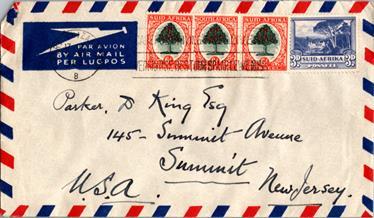 PAR AVION
BY AIR MAIL
PER LUGPOS
8
SUID-AFRIKA
SOUTH AFRICA
SUID-AFRIKA
SUID-AFRIKA
POSSEËL
3D 3D
Parker, D King Esq
145- Summit Avenue
Summit
New Jersey.
U.S.A.